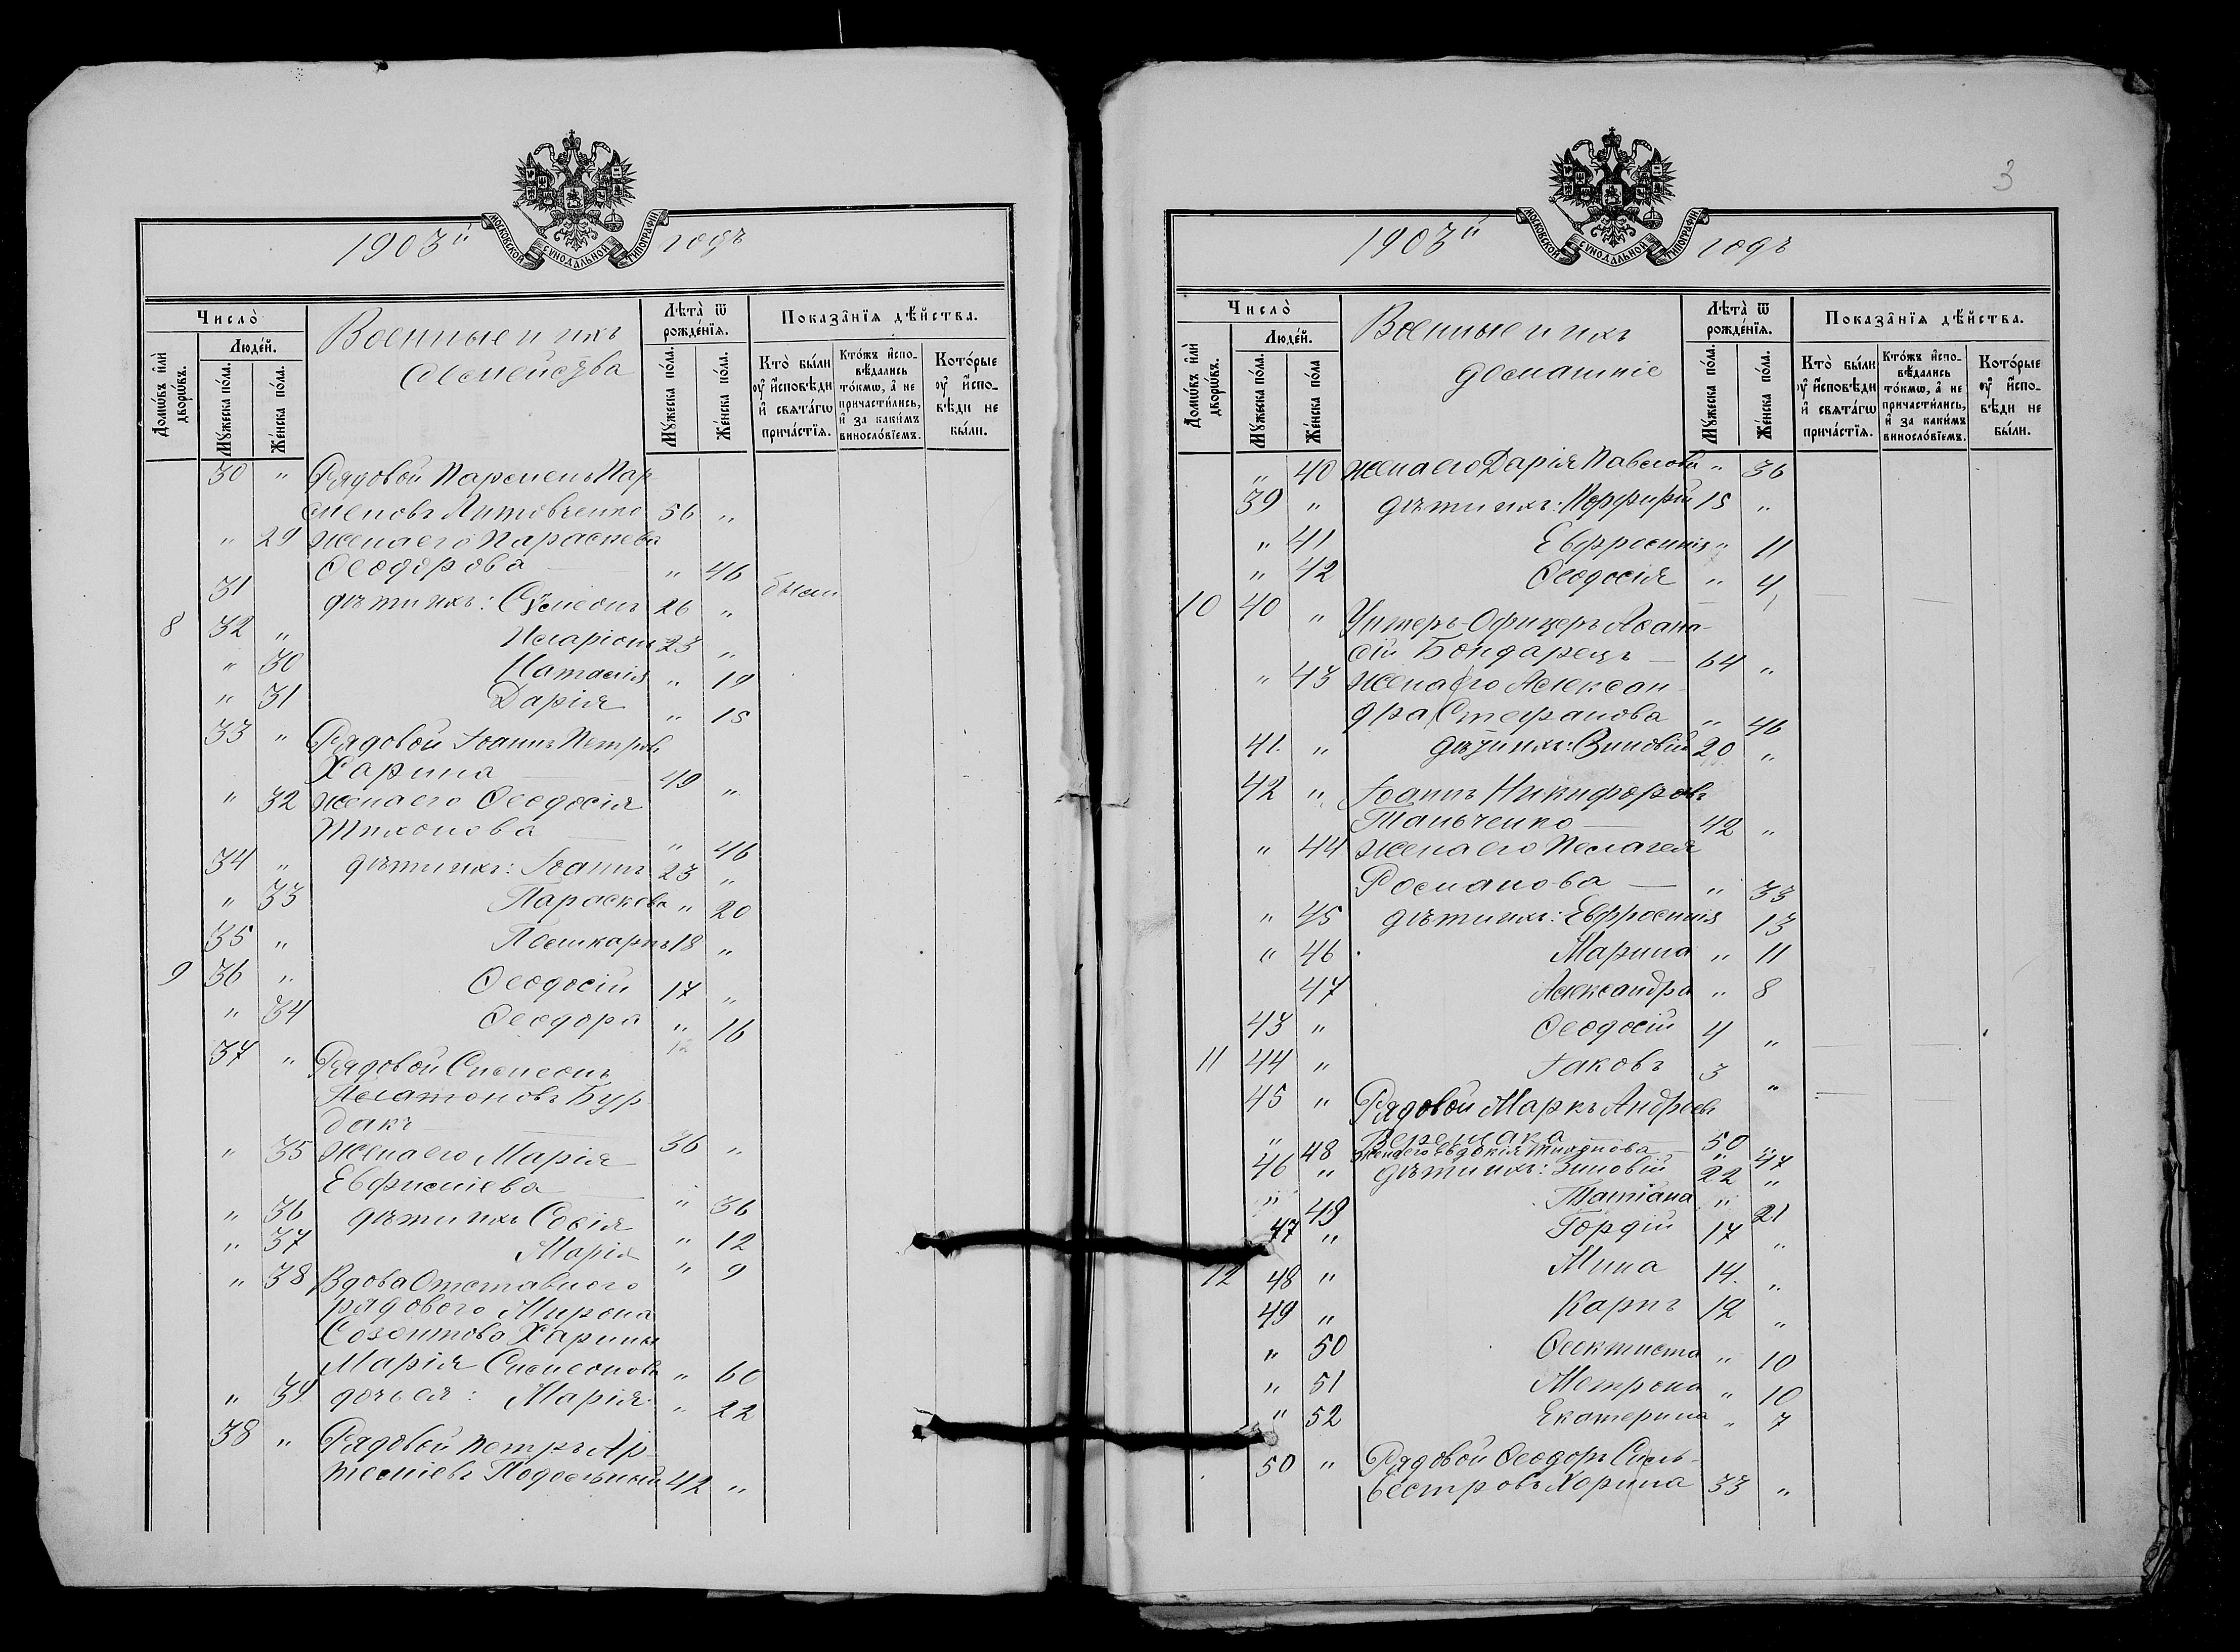 1903й годъ
МОСКОВСКОЙ СѴНОДАЛЬНОЙ ТИПОГРАФІИ
Число̀
Люде́й.
Домѡ́въ и҆лѝ дворѡ́въ.
Мꙋ́жеска по́ла.
Же́нска по́ла.
Военные и ихъ
семейства
Лѣта̀ ѿ рожде́нїѧ.
Мꙋ́жеска по́ла.
Же́нска по́ла.
Показа̑нїѧ дѣ́йства.
Кто̀ бы́ли ᲂу҆ и҆сповѣ́ди и҆ свѧта́гѡ прича́стїѧ.
Кто́жъ и҆сповѣ́дались то́кмѡ, а҆ не причасти́лись, и҆ за каки́мъ винословїемъ.
Кото́рые ᲂу҆ и҆споˊвѣди не бы́ли.
30 " Рядовой Парменъ Пар
меновъ Литовченко 56 "
" 29 жена его Параскева
Ѳеодорова " 46 были
31 дѣти ихъ: Сѵмеонъ 26 "
8 32 " Иларіонъ 23 "
" 30 Наталія " 19
" 31 Дарія " 15
33 " Рядовой Іоаннъ Петровъ
Харина 49 "
" 32 жена его Ѳеодосія
Тихонова " 46
34 " дѣти ихъ: Іоаннъ 23 "
" 33 Параскева " 20
35 " Поликарпъ 18 "
9 36 " Ѳеодосій 17 "
" 34 Ѳеодора " 16
12
37 " Рядовой Симеонъ
Платоновъ Бур
дакъ 36 "
" 35 жена его Марія
Евфиміева " 36
" 36 дѣти ихъ Софія " 12
" 37 Марія " 9
" 38 Вдова Отставного
рядового Мирона
Созонтова Харины
Марія Симеонова " 60
" 39 дочь ея: Марія " 22
38 " Рядовой Петръ Ар
теміевъ Подольный 42 "
3
1903й годъ
МОСКОВСКОЙ СѴНОДАЛЬНОЙ ТИПОГРАФІИ
Число̀
Люде́й.
Домѡ́въ и҆лѝ дворѡ́въ.
Мꙋ́жеска по́ла.
Же́нска по́ла
Военные и ихъ
домашніе
Лѣта̀ ѿ рожде́нїѧ.
Мꙋ́жеска по́ла.
Же́нска по́ла.
Показа̑нїѧ дѣ́йства.
Кто̀ бы́ли ᲂу҆ и҆сповѣ́ди и҆ свѧта́гѡ прича́стїѧ.
Кто́жъ и҆сповѣ́дались то́кмѡ, а҆ не причасти́лись, и҆ за каки́мъ винословїемъ.
Кото́рые ᲂу҆ и҆споˊвѣди не бы́ли.
" 40 жена его Дарія Павлова " 36
39 " дѣти ихъ: Порфирій 15 "
" 41 Евфросинія " 11
" 42 Ѳеодосія " 4
10 40 " Унтеръ-Офицеръ Аѳана-
сій Бондарецъ 64 "
" 43 жена его Алексан
дра Стефанова " 46
41. " дѣти ихъ: Зиновій 20 "
42 " Іоаннъ Никифоровъ
Танченко 42 "
" 44 жена его Пелагея
Романова " 33
" 45 дѣти ихъ: Евфросинія 13
" 46 Марина " 11
47 Александра " 8
43 " Ѳеодосій 4 "
11 44 " Іаковъ 3 "
45 " Рядовой Маркъ Андреевъ
50 "
" 48 жена его Евдокія Тихонова " 47
46 " дѣти ихъ: Зиновій 22 "
" 49 Татіана " 21
47 " Гордій 17 "
12 48 " Мина 14. "
49 " Карпъ 12 "
" 50 Ѳеоктиста " 10
" 51 Матрона " 10
" 52 Екатерина " 7
50 " Рядовой Ѳеодоръ Силь-
вестровъ Харина 33 "